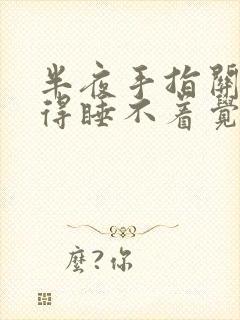 半夜手指關
得睡不着覺
麼?你